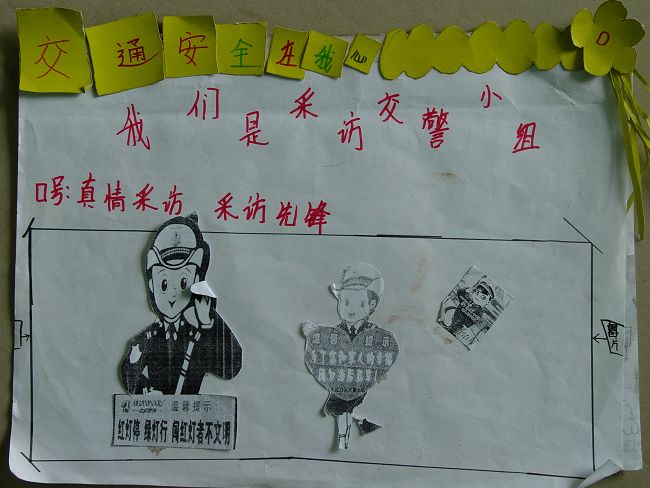 交通安全在我心
我们是采访交警小组
口号:真情采访 采访先锋
温馨提示
红灯停 绿灯行 闯红灯者不文明
温馨提示
照片